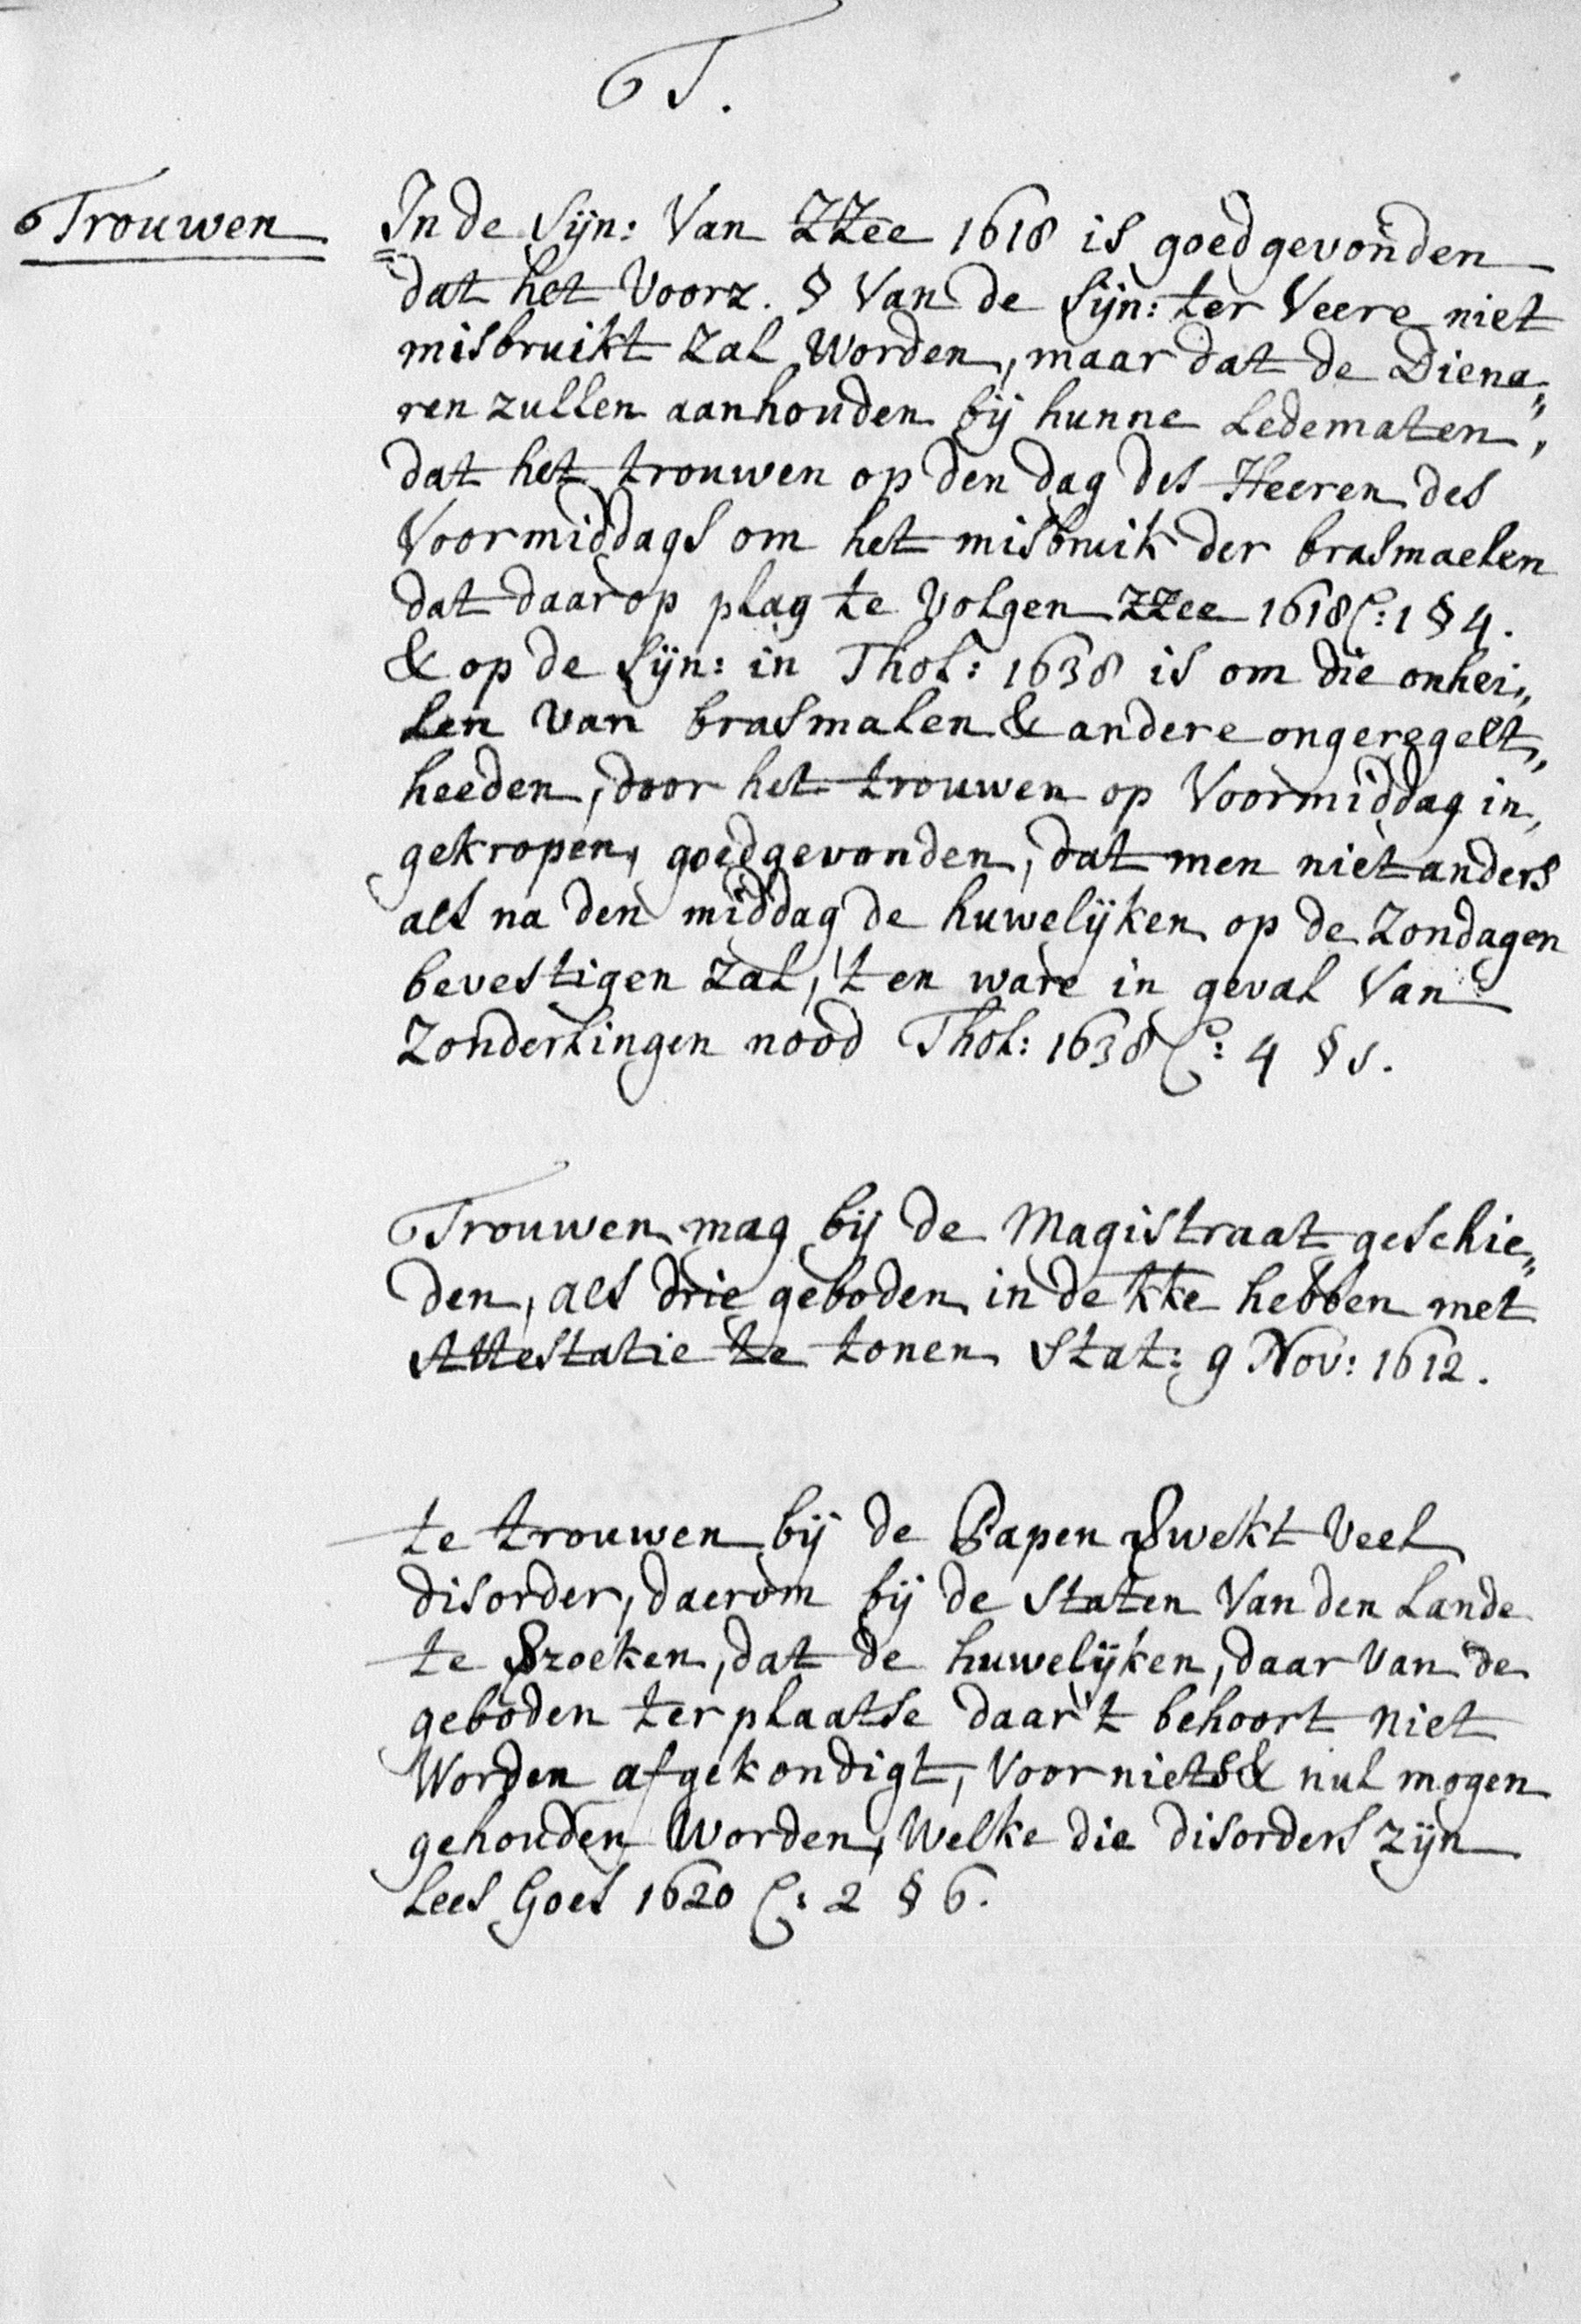 T.
Trouwen
In de Sijn: Van ZZee 1618 is goed gevonden
dat het Voorz. § Van de Sijn: ter Veere niet
misbruikt zal Worden, maar dat de Diena„
ren zullen aanhouden bij hunne Ledematen,
dat het trouwen op den dag des Heeren des
Voormiddags om het misbruik der brasmaelen
dat daar op plag te Volgen ZZee 1618 C: 1 § 4.
& op de Sijn: in Thol: 1638 is om die onhei„
len van brasmalen & andere ongeregelt„
heeden, door het trouwen op Voormiddag in„
gekropen, goedgevonden, dat men niet anders
als na den middag de huwelijken op de Zondagen
bevestigen zal, 't en ware in geval Van
Zonderlingen nood Thol: 1638 C: 4 § s.
Trouwen mag bij de Magistraat geschie„
den, als drie geboden in de kke hebben met
Attestatie te tonen Stat: 9 Nov: 1612.
te trouwen bij de Papen &wekt Veel
disorder, daerom bij de Staten Van den Lande
te &zoeken, dat de huwelijken, daar van de
geboden ter plaatse daar 't behoort niet
Worden afgekondigt, Voor niets & nul mogen
gehouden Worden, Welke die disorders zijn
Lees Goes 1620 C: 2 § 6.